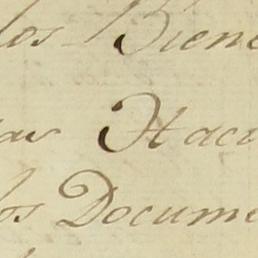 los Biene
las Haci
los Docume